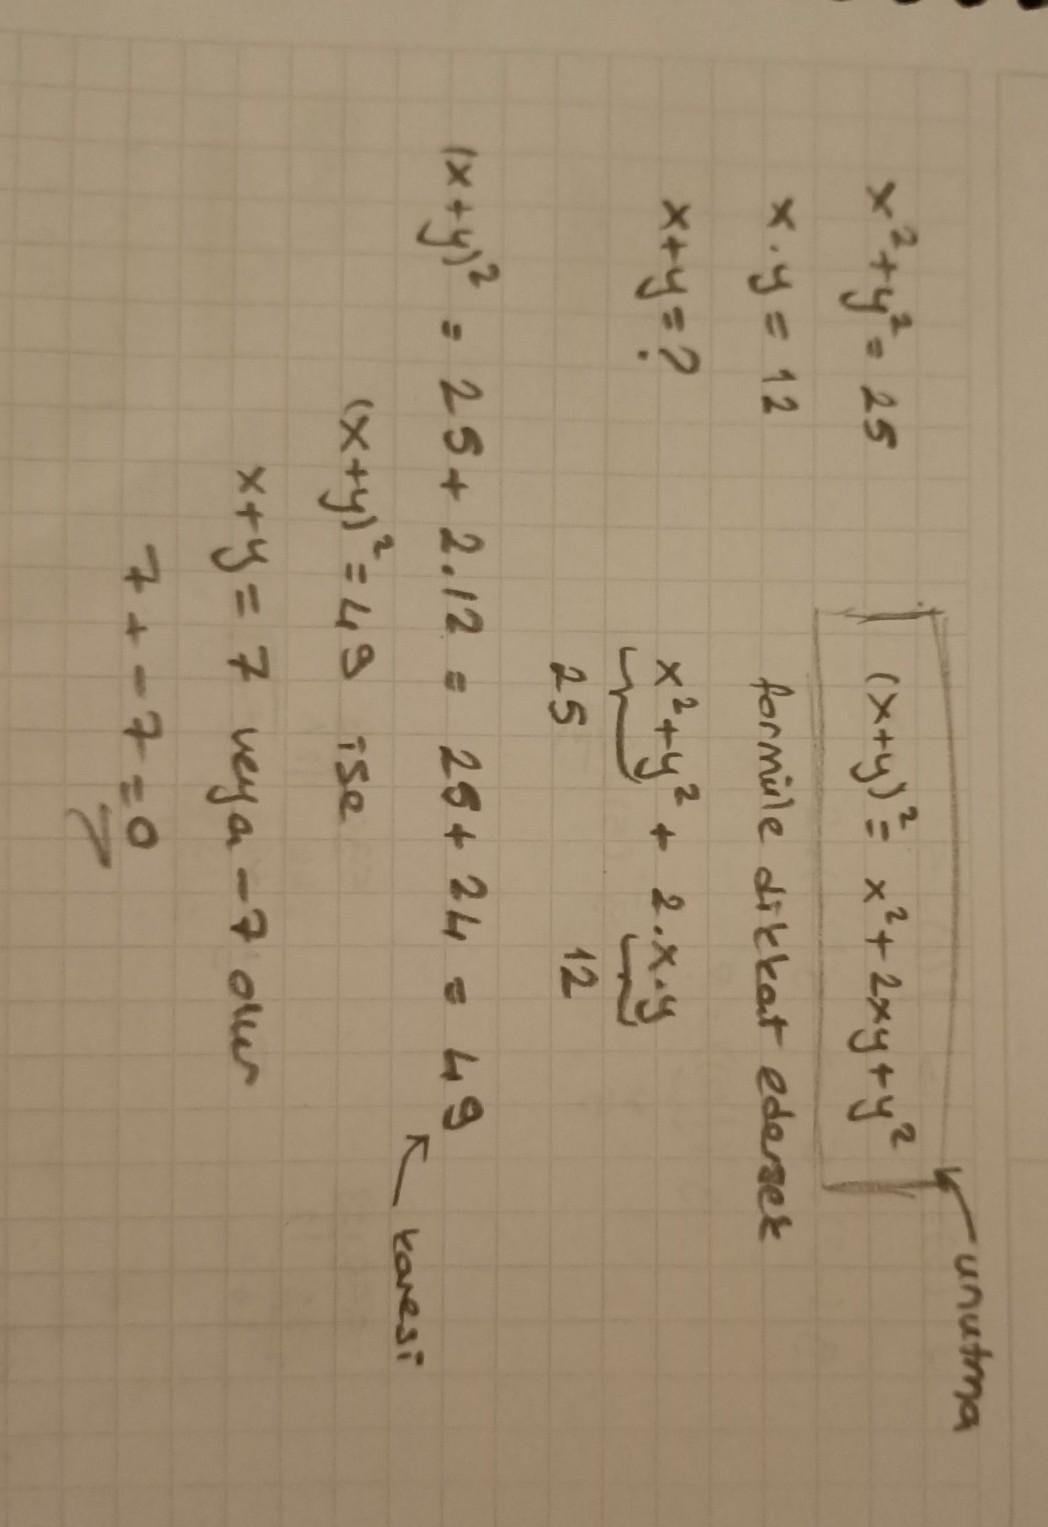 x² + y² = 25
x . y = 12
x + y = ?
(x + y)² = x² + 2xy + y²
unutma
formüle dikkat edersek
x² + y² + 2.x.y
25 12
(x + y)² = 25 + 2.12 = 25 + 24 = 49
karesi
(x + y)² = 49 ise
x + y = 7 veya -7 olur
7 + - 7 = 0